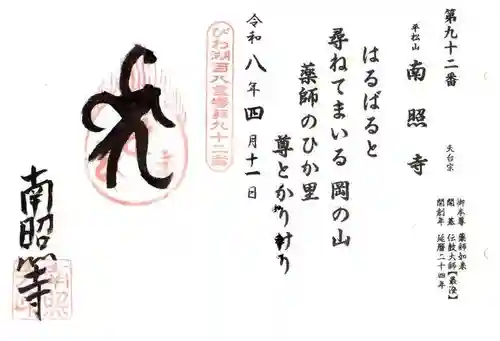 第九十二番
平松山 南照寺 天台宗
御本尊 薬師如来
開基 伝教大師【最澄】
開創年 延暦二十四年
はるばると
尋ねてまいる 岡の山
薬師のひか里
尊とかりけり
令和八年四月十一日
びわ湖百八霊場第九十二番
南照寺